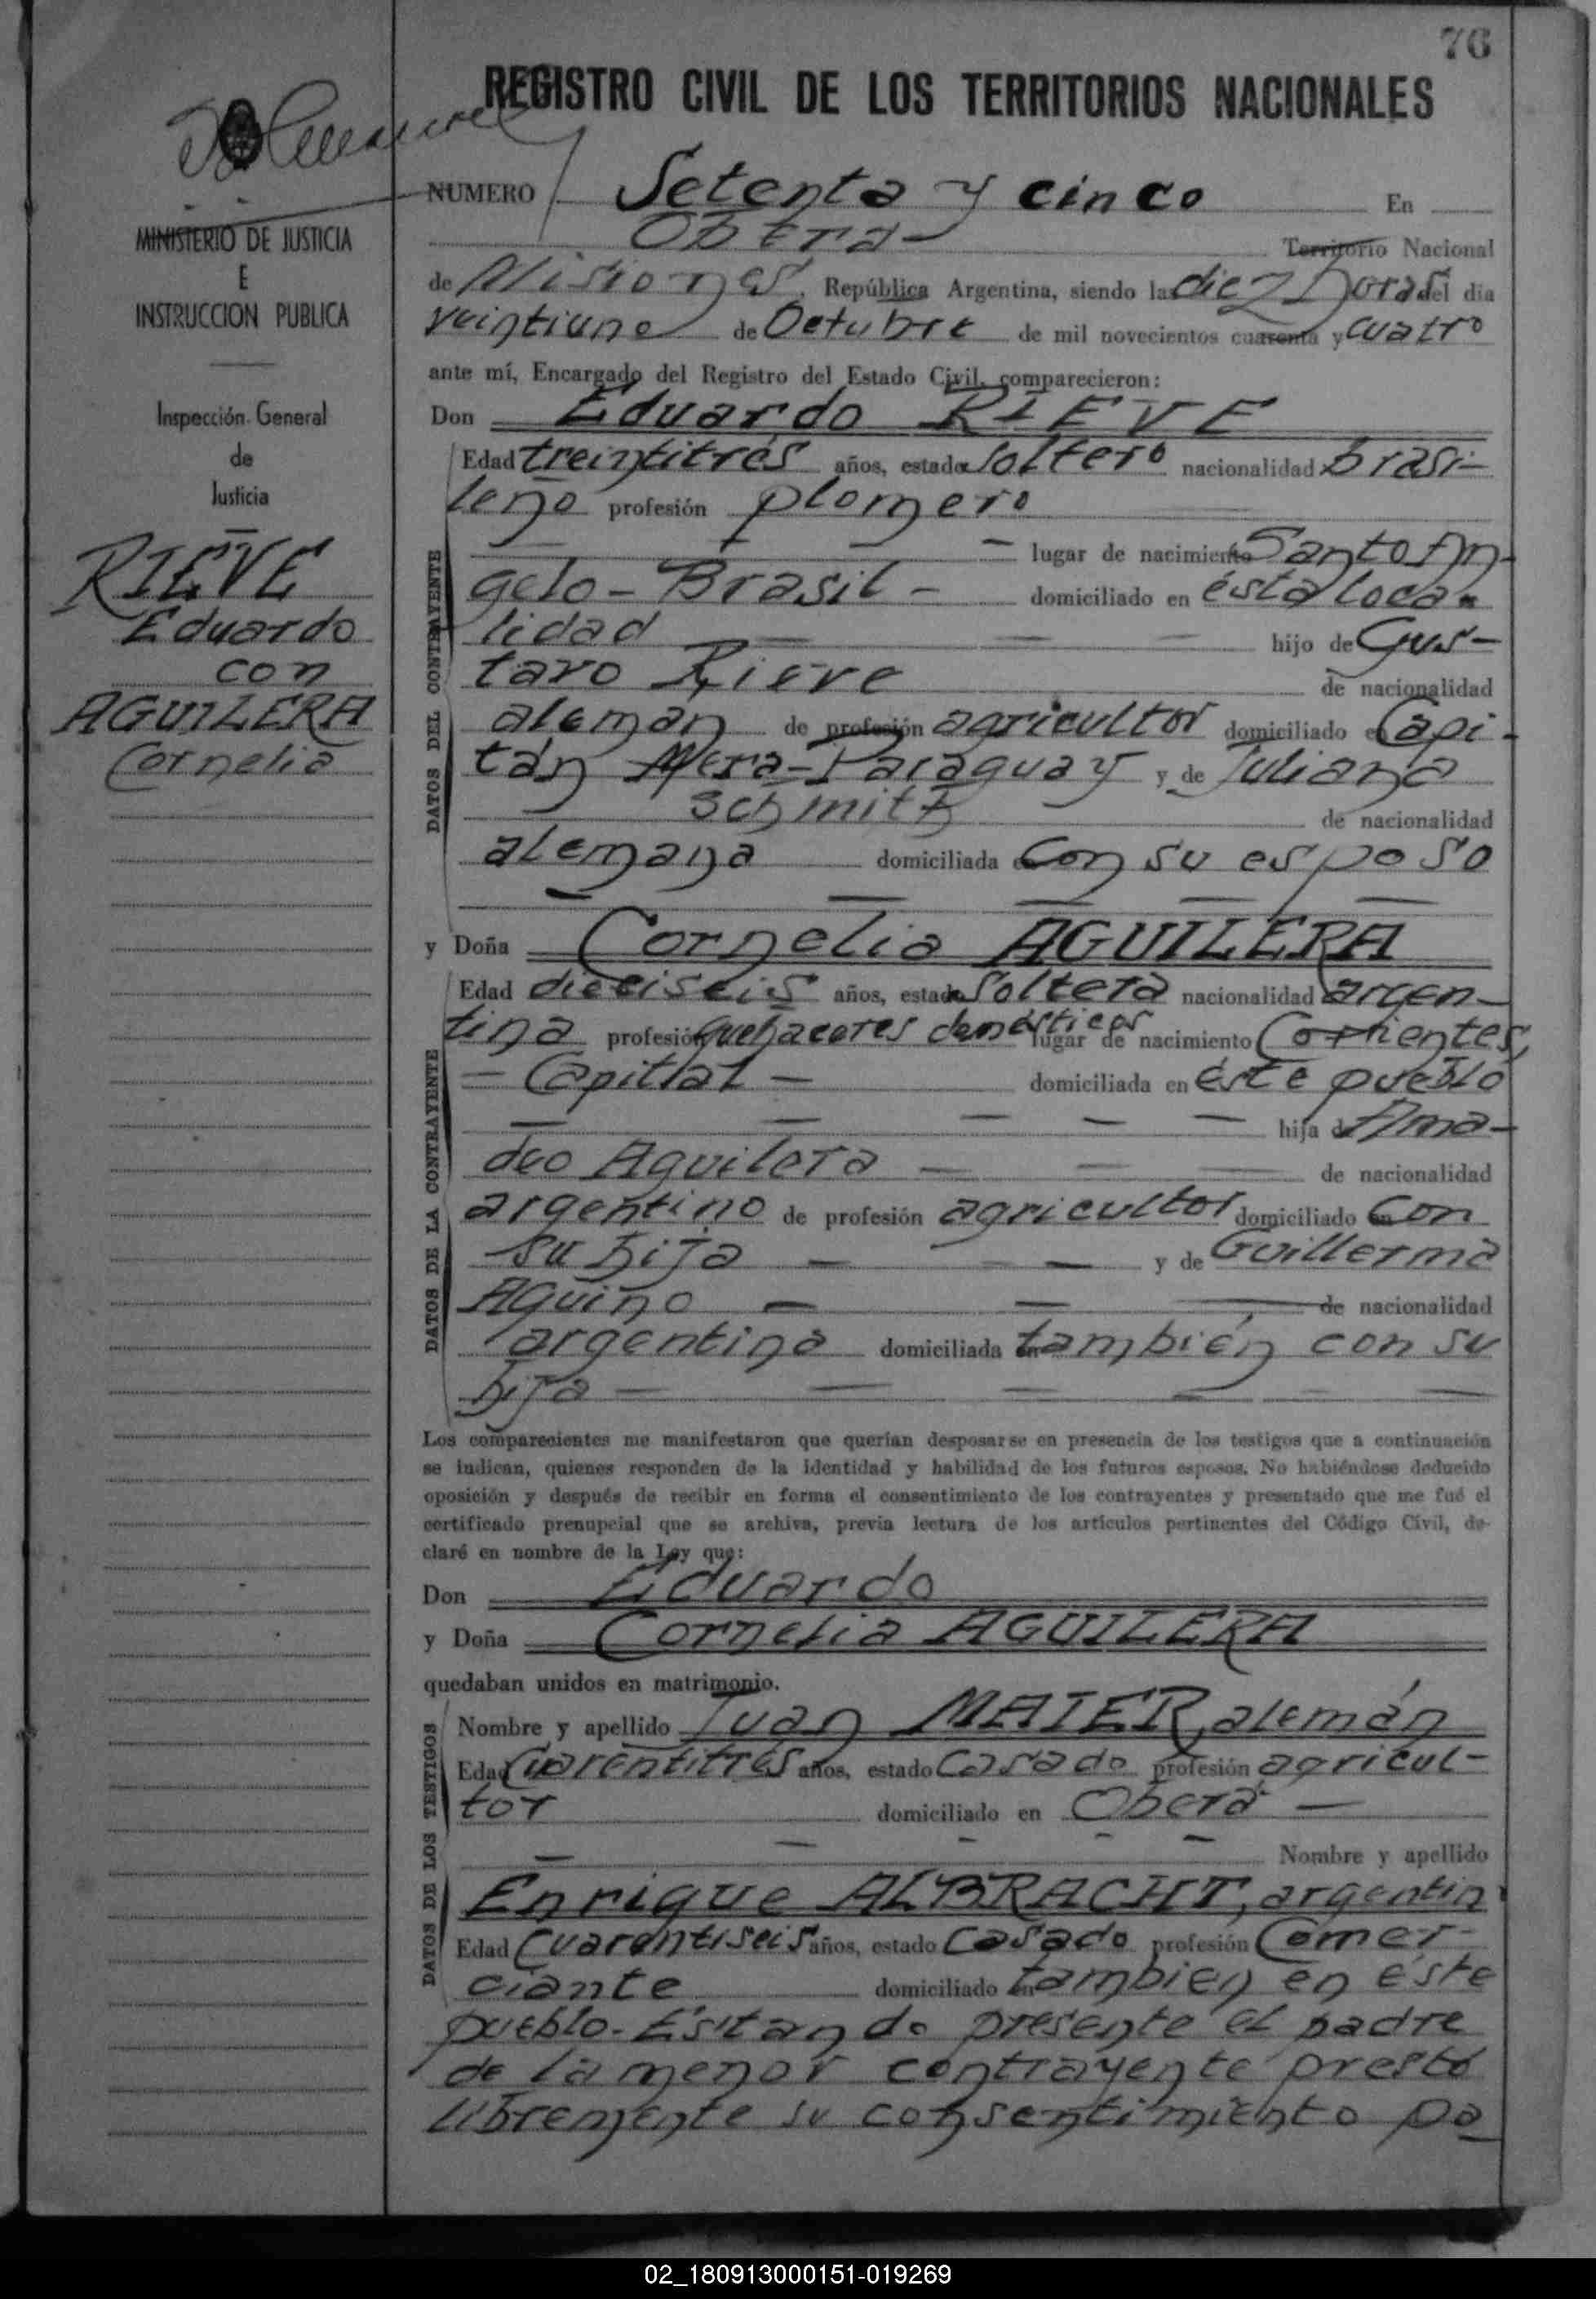 76
REGISTRO CIVIL DE LOS TERRITORIOS NACIONALES
NUMERO Setenta y cinco En
Oberá - Territorio Nacional
de Misiones, República Argentina, siendo las diez horas del dia
veintiuno de Octubre de mil novecientos cuarenta y cuatro
ante mí, Encargado del Registro del Estado Civil, comparecieron:
Don Eduardo RIEVE
Edad treintitrés años, estado soltero nacionalidad brasi-
leño profesión plomero
lugar de nacimiento Santo An-
gelo - Brasil - domiciliado en ésta loca-
lidad hijo de Gus-
tavo Rieve de nacionalidad
aleman de profesión agricultor domiciliado en Capi-
tán Meza - Paraguay y de Juliana
Schmitt de nacionalidad
alemana domiciliada en con su esposo
y Doña Cornelia AGUILERA
Edad dieciseis años, estado soltera nacionalidad argen-
tina profesión quehaceres domésticos lugar de nacimiento Corrientes,
- Capital - domiciliada en éste pueblo
hija de Ama-
deo Aguilera de nacionalidad
argentino de profesión agricultor domiciliado en con
su hija y de Guillerma
Aquino de nacionalidad
argentina domiciliada en también con su
hija
Los comparecientes me manifestaron que querían desposarse en presencia de los testigos que a continuación
se indican, quienes responden de la identidad y habilidad de los futuros esposos. No habiéndose deducido
oposición y después de recibir en forma el consentimiento de los contrayentes y presentado que me fué el
certificado prenupcial que se archiva, previa lectura de los artículos pertinentes del Código Civil, de-
claré en nombre de la Ley que:
Don Eduardo
y Doña Cornelia AGUILERA
quedaban unidos en matrimonio.
Nombre y apellido Juan MAIER, alemán
Edad cuarentitrés años, estado casado profesión agricul-
tor domiciliado en Oberá -
Nombre y apellido
Enrique ALBRACHT, argentin
Edad cuarentiseis años, estado casado profesión comer-
ciante domiciliado en también en éste
pueblo. - Estando presente el padre
de la menor contrayente prestó
libremente su consentimiento pa
MINISTERIO DE JUSTICIA
E
INSTRUCCION PUBLICA
Inspección General
de
Justicia
RIEVE
Eduardo
con
AGUILERA
Cornelia
DATOS DEL CONTRAYENTE
DATOS DE LA CONTRAYENTE
DATOS DE LOS TESTIGOS
02_180913000151-019269